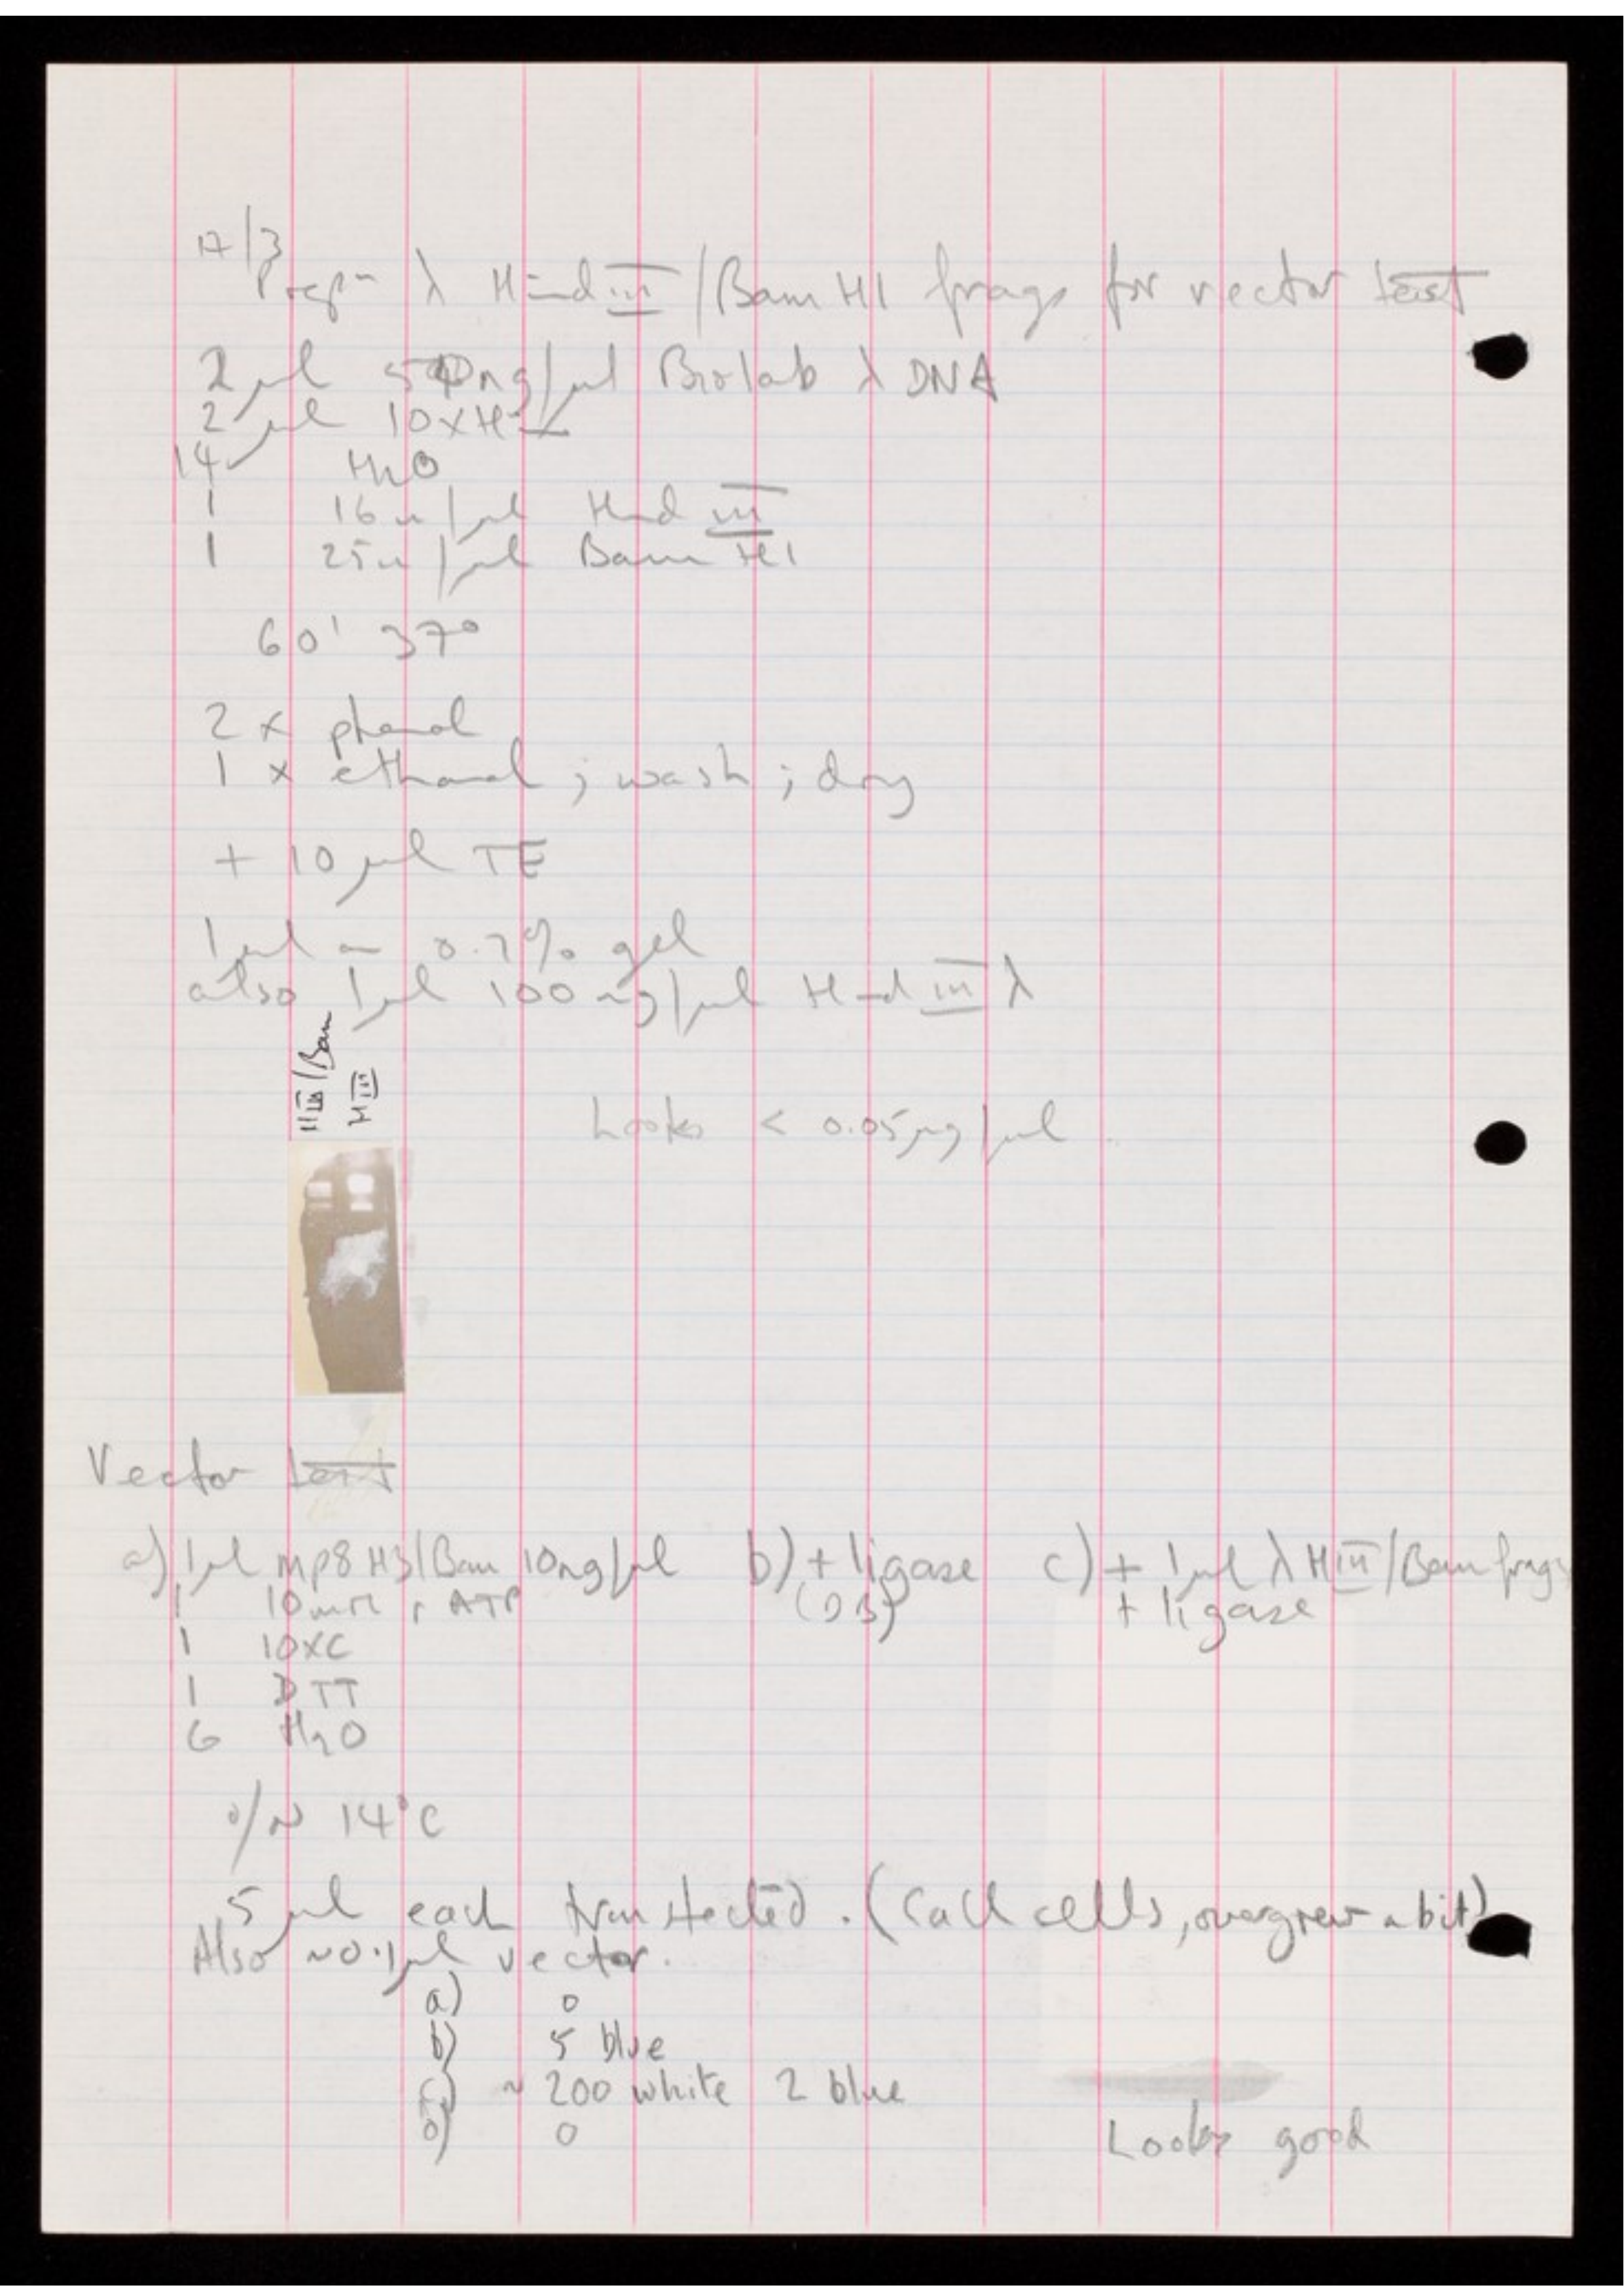 17/3
Prepn λ Hind III / Bam H1 frags for vector test
2 µl 500ng/µl Biolab λ DNA
2 µl 10xH
14 H2O
1 16u/µl Hind III
1 25u/µl Bam H1
60' 37°
2 x phenol
1 x ethanol ; wash ; dry
+ 10 µl TE
1µl on 0.7% gel
also 1µl 100 ng/µl Hind III λ
HIII/Bam
HIII
Looks < 0.05µg/µl
Vector test
a) 1µl mp8 H3/Bam 10ng/µl b) + ligase c) + 1µl λ HIII/Bam frags
1 10mM rATP + ligase
1 10XC
1 DTT
6 H2O
o/N 14°C
5 µl each transfected. (CaCl cells, overgrew a bit)
Also ~0.1µl vector.
a) 0
b) 5 blue
c) ~ 200 white 2 blue
0
Looks good